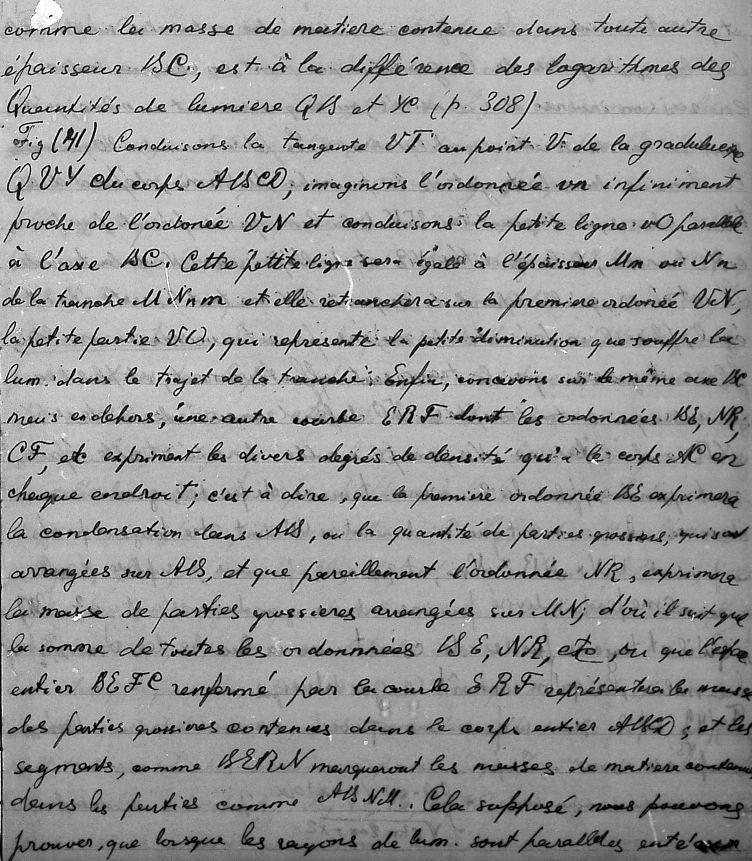 comme la masse de matiere contenue dans toute autre
épaisseur BC, est à la différence des logarithmes des
Quantités de lumiere QB et YC (p. 308)
Fig (41) Conduisons la tangente VT au point V de la gradulucne
QVY du corps ABCD; imaginons l'ordonnée vn infiniment
proche de l'ordonée VN et conduisons la petite ligne vO parallele
à l'axe BC. Cette petite ligne sera égale à l'épaisseur Mm ou Nn
de la tranche MNnm et elle retranchera sur la premiere ordonée VN,
la petite partie VO, qui représente la petite diminution que souffre la
lum. dans le trajet de la tranche. Enfin, concevons sur le même axe BC
mais en dehors, une autre courbe ERF dont les ordonnées BE, NR,
CF, etc expriment les divers degrés de densité qu'a le corps AC en
chaque endroit; c'est à dire, que la premiere ordonnée BE exprimera
la condensation dans AB, ou la quantité de parties grossieres, qui sont
arrangées sur AB, et que pareillement l'ordonnée NR, exprimera
la masse de parties grossieres arrangées sur MN; d'où il suit que
la somme de toutes les ordonnnées BE, NR, etc, ou que l'espace
entier BEFC renfermé par la courbe ERF représentera la masse
des parties grossieres contenues dans le corps entier ABCD; et les
segments, comme BERN marqueront les masses de matiere contenue
dans les parties comme ABNM. Cela supposé, nous pouvons
prouver, que lorsque les rayons de lum. sont paralleles